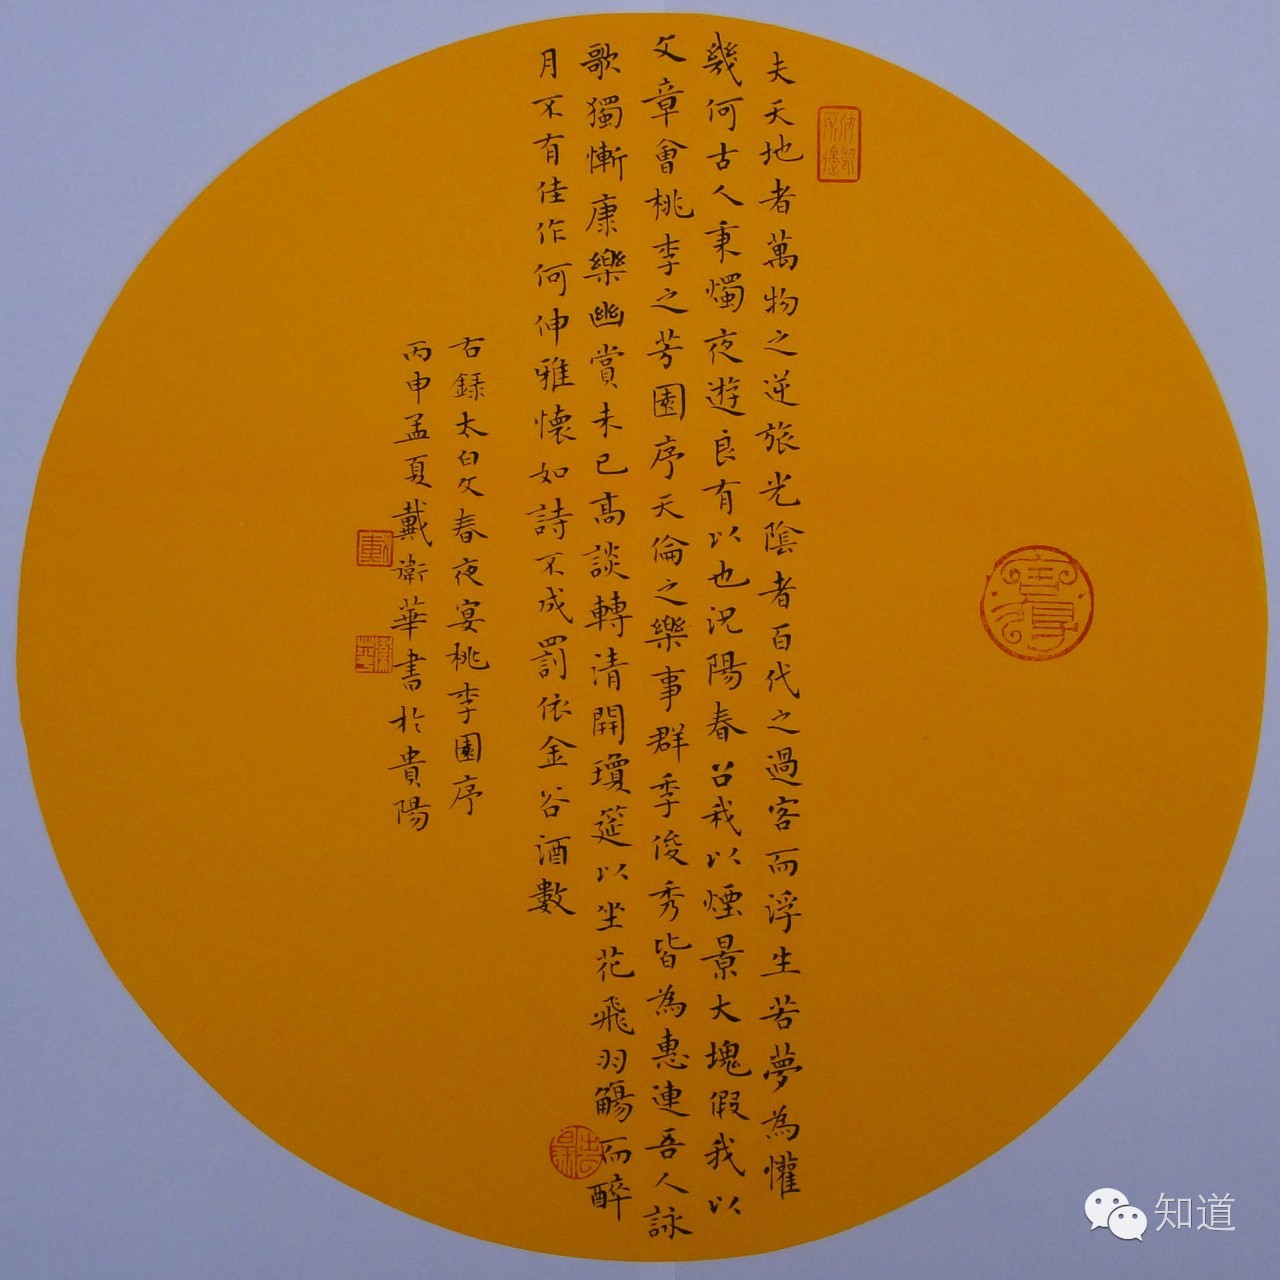 夫天地者萬物之逆旅光陰者百代之過客而浮生若夢為懽
幾何古人秉燭夜遊良有以也況陽春召我以煙景大塊假我以
文章會桃李之芳園序天倫之樂事群季俊秀皆為惠連吾人詠
歌獨慚康樂幽賞未已高談轉清開瓊筵以坐花飛羽觴而醉
月不有佳作何伸雅懷如詩不成罰依金谷酒數
右録太白文春夜宴桃李園序
丙申孟夏戴衛華書於貴陽
知道